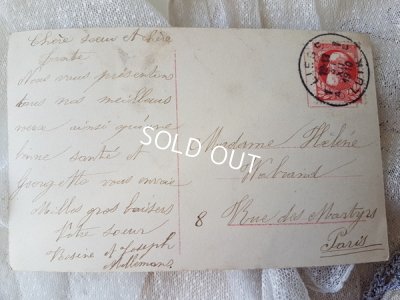 Chère soeur et chère
Nous vous présentons
tous nos meilleurs
voeux ainsi qu'une
bonne santé et
Georgette vous envoie
Mille gros baisers
Votre soeur
Rosine et Joseph
LIEGE
SOLD OUT
Madame Hélène
8 Rue des Martyrs
Paris